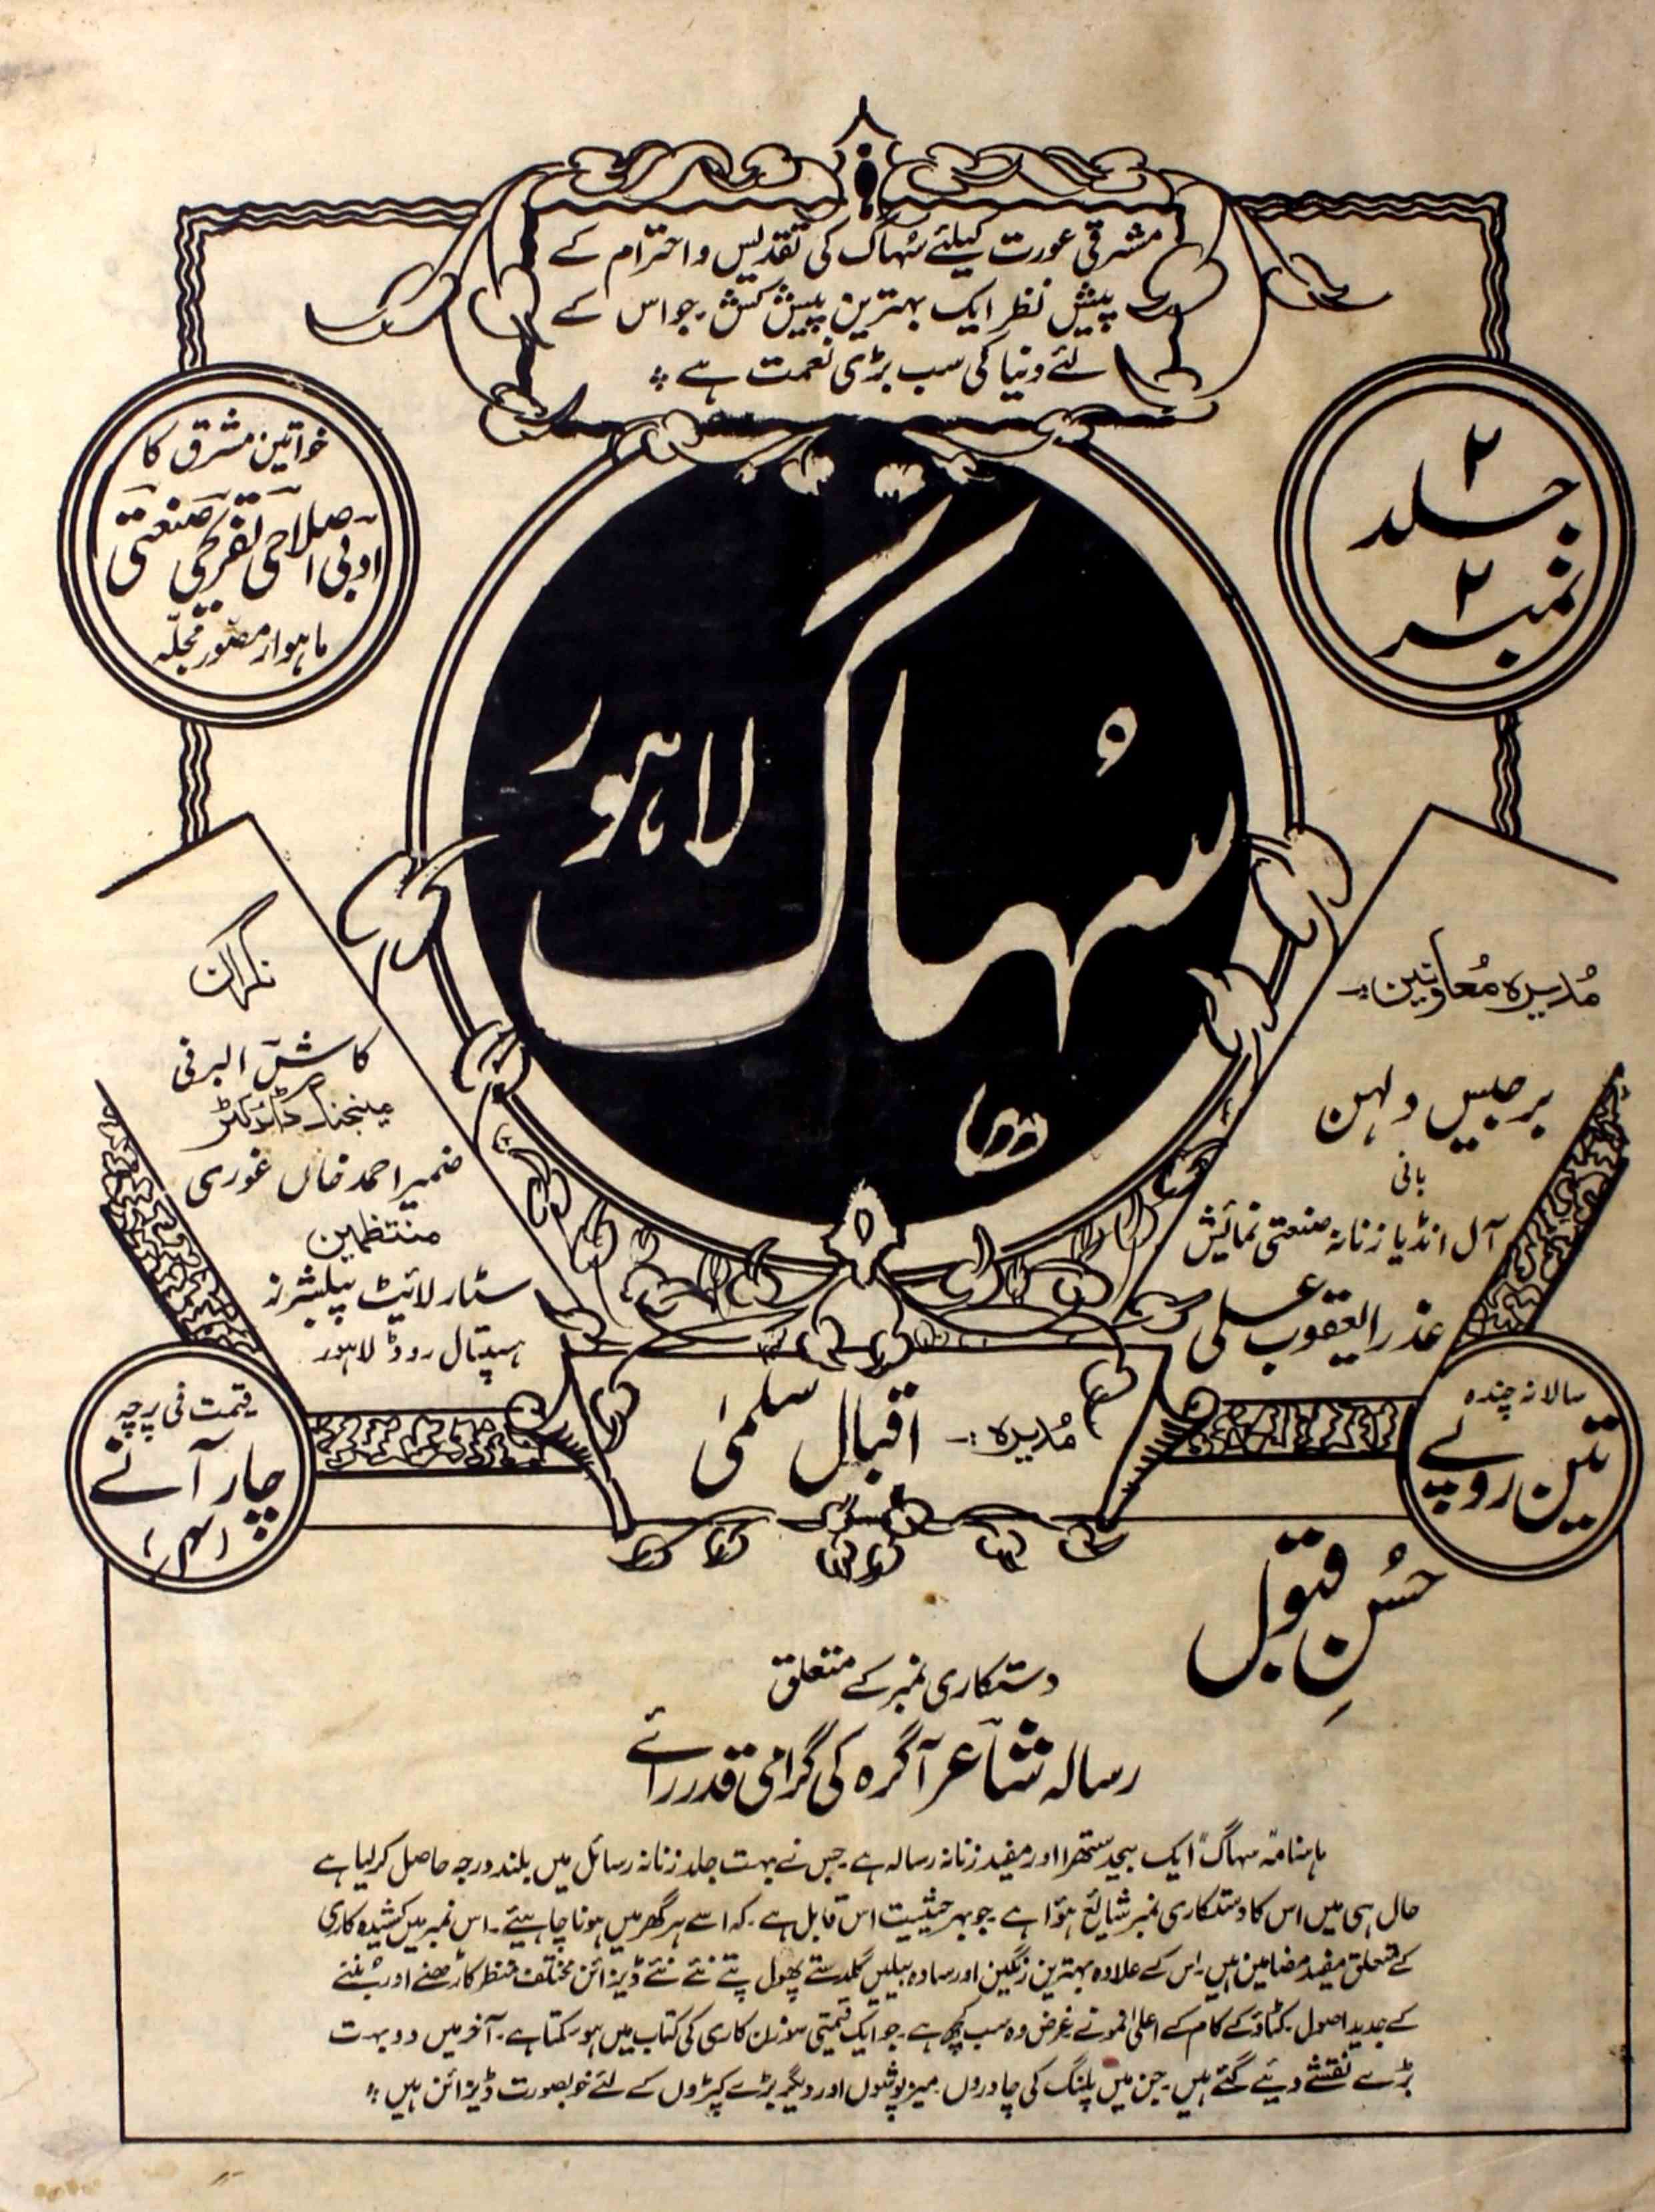 مشرقی عورت کیلئے سُہاگ کی تقدیس و احترام کے
پیش نظر ایک بہترین پیش کش ۔ جو اس کے
لئے دنیا کی سب بڑی نعمت ہے ؞
۲
جلد
۲
نمبر
خواتین مشرق کا
ادبی اصلاحی تفریحی صنعتی
ماہوار مصّور مجلّہ
سُہاگ
لاہور
مُدیرہ مُعاونین:۔
برجیس دلہن
بانی
آل انڈیا زنانہ صنعتی نمائیش
عذرا یعقوب علی
نگران
کاش البرنی
مینجنگ ڈائرکٹر
ضمیر احمد خاں غوری
منتظمین
سٹار لائیٹ پبلشرز
ہسپتال روڈ لاہور
مُدیرہ :۔ اقبال سلمیٰ
سالانہ چندہ
تین روپے
قیمت فی پرچہ
چار آنے
(۴ر)
حُسنِ قبول
دستکاری نمبر کے متعلق
رسالہ شاعر آگرہ کی گرامی قدر رائے
ماہنامہ "سہاگ" ایک بیحد ستھرا اور مفید زنانہ رسالہ ہے ۔ جس نے بہت جلد زنانہ رسائل میں بلند درجہ حاصل کر لیا ہے
حال ہی میں اس کا دستکاری نمبر شائع ہؤا ہے ۔ جو بہر حیثیت اس قابل ہے ۔ کہ اسے ہر گھر میں ہونا چاہیئے ۔ اس نمبر میں کشیدہ کاری
کے متعلق مفید مضامین ہیں ۔ اس کے علاوہ بہترین رنگین اور سادہ بیلیں گلدستے پھول پتے نئے نئے ڈیزائن مختلف منظر کاڑھنے اور بننے
کے جدید اصول ۔ کٹاؤ کے کام کے اعلیٰ نمونے غرض وہ سب کچھ ہے ۔ جو ایک قیمتی سوزن کاری کی کتاب میں ہو سکتا ہے ۔ آخر میں دو بہت
بڑے نقشے دیئے گئے ہیں ۔ جن میں پلنگ کی چادروں میز پوشوں اور دیگر بڑے کپڑوں کے لئے خوبصورت ڈیزائن ہیں ؞